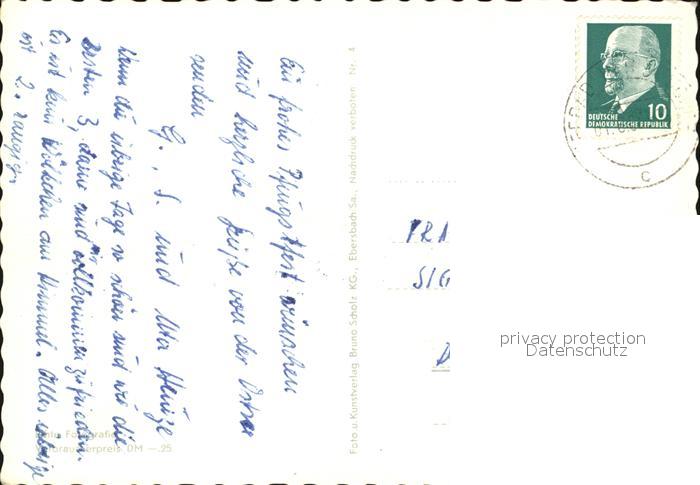 Ein frohes Pfingstfest wünschen
und herzliche Grüße von der Ostsee
senden
G., S. und Uta
Wenn die übrige Tage so schön sind wie die
besten 3, dann sind wir vollkommen zufrieden.
Es ist kein Wölkchen am Himmel. Alles übrige
ist 2. rangig.
Echte Fotografie
Verbraucherpreis DM —.25
Foto u. Kunstverlag Bruno Scholz KG., Ebersbach Sa., Nachdruck verboten Nr. 4
10
DEUTSCHE
DEMOKRATISCHE REPUBLIK
c
FRA
SIG
privacy protection
Datenschutz